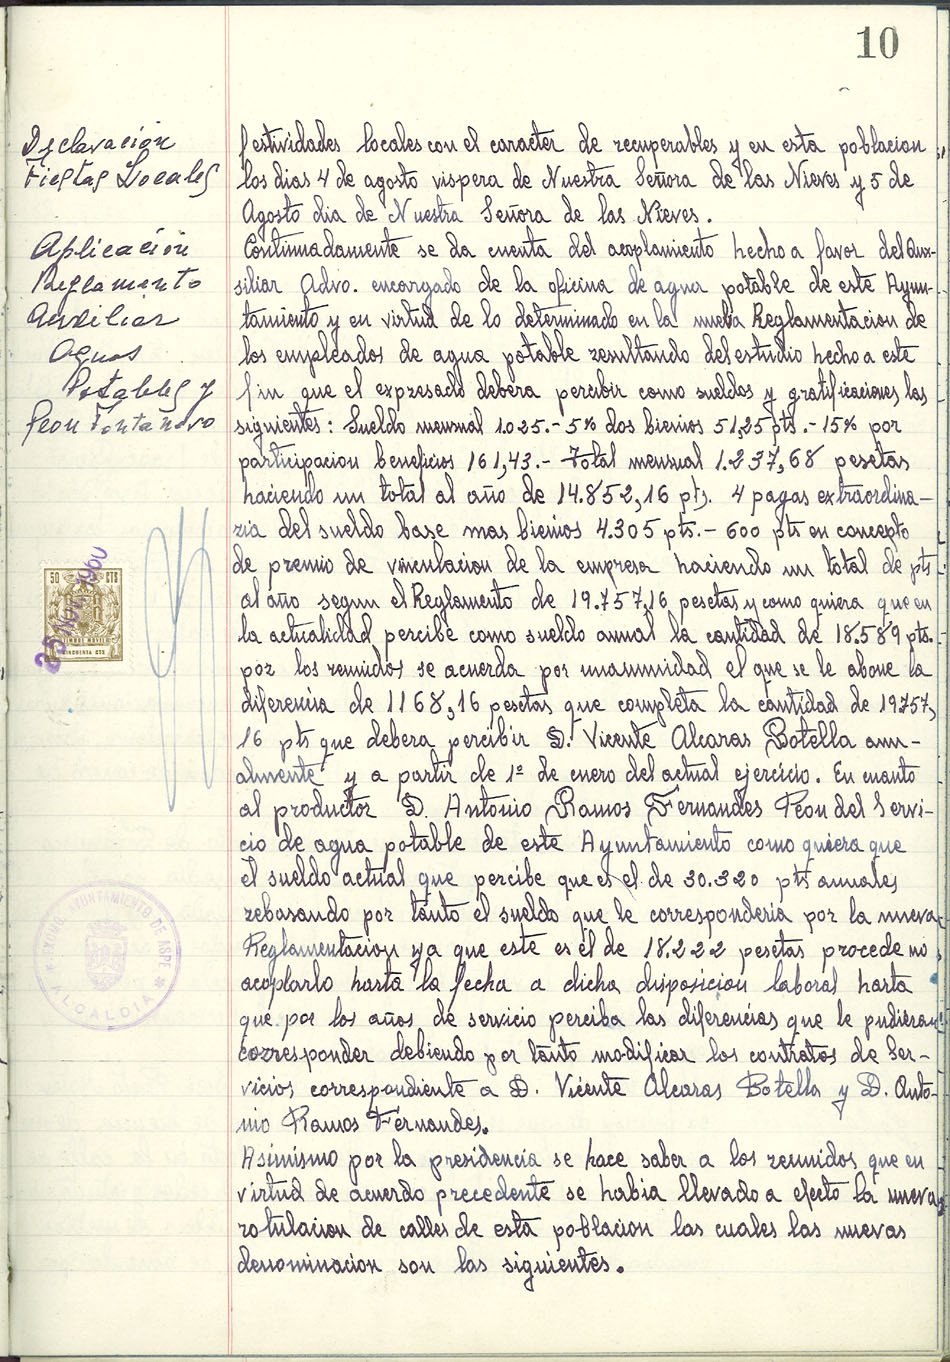 10
Declaración
Fiestas Locales
festividades locales con el caracter de recuperables y en esta poblacion
los dias 4 de agosto vispera de Nuestra Señora de las Nieves y 5 de
Agosto dia de Nuestra Señora de las Nieves.
Aplicación
Reglamento
Auxiliar
Aguas
Potables y
Peon Fontanero
Continuadamente se da cuenta del acoplamiento hecho a favor del Au-
siliar Advo. encargado de la oficina de agua potable de este Ayun-
tamiento y en virtud de lo determinado en la nueva Reglamentacion de
los empleados de agua potable resultando del estudio hecho a este
fin que el expresado debera percibir como sueldos y gratificaciones las
siguientes: Sueldo mensual 1.025.- 5% dos bienios 51,25 pts.- 15% por
participacion beneficios 161,43.- Total mensual 1.237,68 pesetas
haciendo un total al año de 14.852,16 pts. 4 pagas extraordina-
ria del sueldo base mas bienios 4.305 pts.- 600 pts en concepto
de premio de vinculacion de la empresa haciendo un total de pts
al año segun el Reglamento de 19.757,16 pesetas y como quiera que en
la actualidad percibe como sueldo annal la cantidad de 18.589 pts.
por los reunidos se acuerda por unanimidad el que se le abone la
diferencia de 1168,16 pesetas que completa la cantidad de 19.757,
16 pts que debera percibir D. Vicente Alcaras Botella anu-
almente y a partir de 1º de enero del actual ejercicio. En cuanto
al productor D. Antonio Ramos Fernandes Peon del Servi-
cio de agua potable de este Ayuntamiento como quiera que
el sueldo actual que percibe que es el de 30.320 pts anuales
rebasando por tanto el sueldo que le corresponderia por la nueva
Reglamentacion ya que este es el de 18.222 pesetas procede no
acoplarlo hasta la fecha a dicha disposicion laboral hasta
que por los años de servicio perciba las diferencias que le pudieran
corresponder debiendo por tanto modificar los contratos de Ser-
vicios correspondiente a D. Vicente Alcaras Botella y D. Anto-
nio Ramos Fernandes.
Asimismo por la presidencia se hace saber a los reunidos que en
virtud de acuerdo precedente se habia llevado a efecto la nueva
rotulacion de calles de esta poblacion las cuales las nuevas
denominacion son las siguientes.
50 CTS
TIMBRE MOVIL
CINCUENTA CTS
25 NOV. 1960
EXCMO. AYUNTAMIENTO DE ASPE
* ALCALDIA *